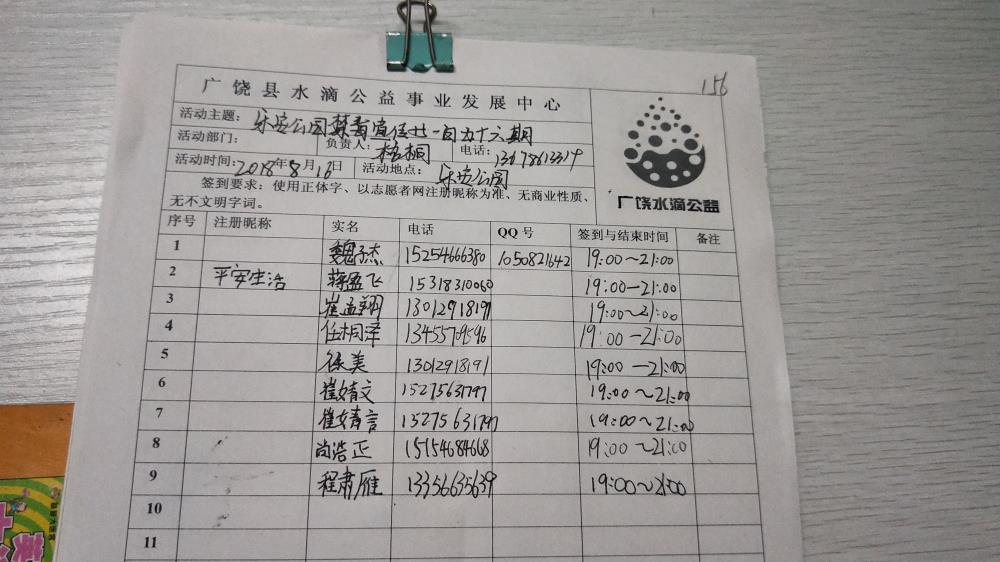 156
广饶县水滴公益事业发展中心
活动主题: 乐安公园禁毒宣传 一百五十六期
活动部门: 负责人: 梧桐 电话:
活动时间: 2018年8月16日 活动地点: 乐安公园
签到要求:使用正体字、以志愿者网注册昵称为准、无商业性质、
无不文明字词。
广饶水滴公益
序号 注册昵称 实名 电话 QQ号 签到与结束时间 备注
1 魏子杰 15254666380 1050821642 19:00~21:00
2 平安生活 蒋盈飞 15318310060 19:00—21:00
3 崔孟翔 13012918191 19:00~21:00
4 任桐泽 13455709596 19:00—21:00
5 徐美 13012918191 19:00—21:00
6 崔婧文 15275631797 19:00~21:00
7 崔婧言 15275631797 19:00~21:00
8 尚浩正 15154684668 19:00~21:00
9 程肃雁 13356635639 19:00~21:00
10
11